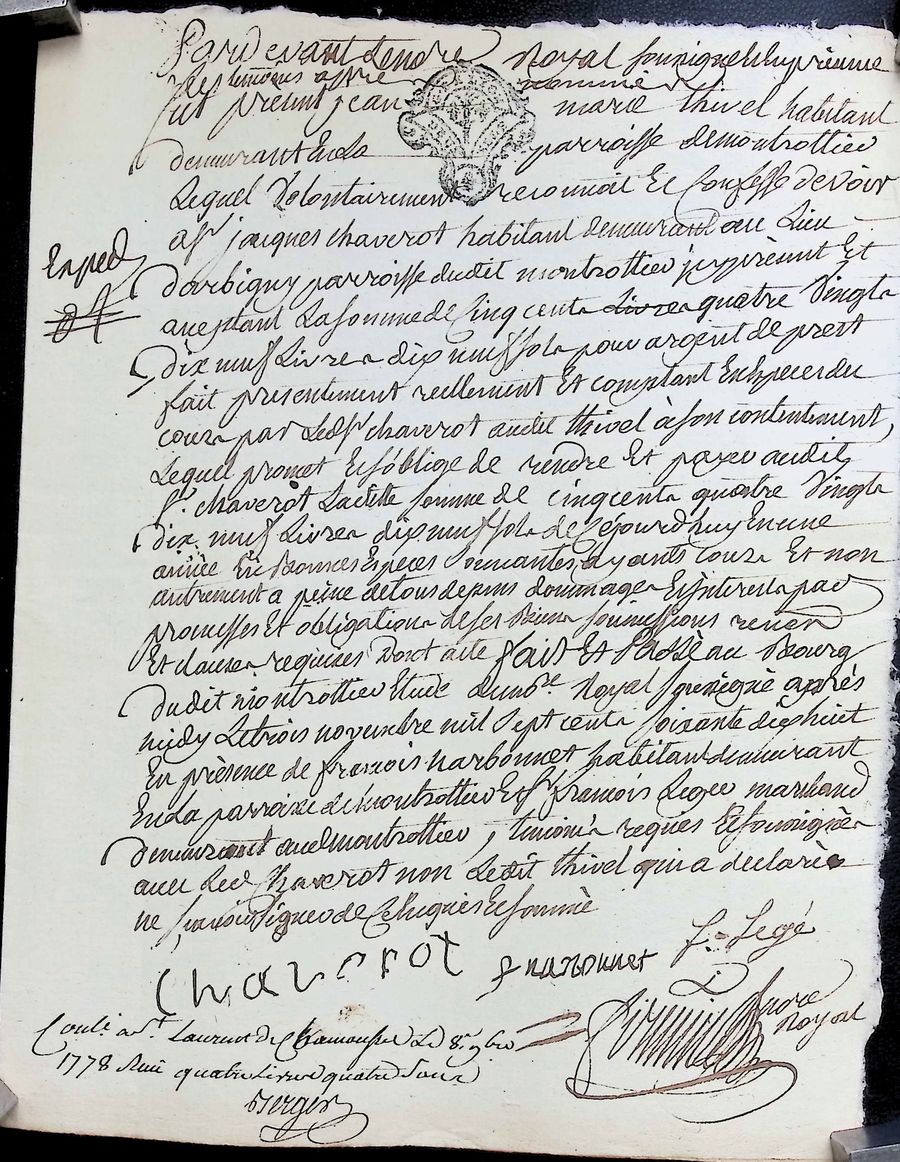 Pardevant Lenore Royal soussigné En présence
des temoins apprè nommé
fut present jean marie thivel habitant
demeurant En La parroisse de montrottier
Lequel Volontairement reconnoit Et Confesse devoir
a sr jacques chaverot habitant demeurant au Lieu
Exped
darbigny parroisse dudit montrottier jcy present Et
aceptant La somme de Cinq cents Livres quatre Vingts
dix neuf Livres dix neuf sols pour argent de prest
fait presentement reellement Et comptant En Especes du
cours par Ledsr chaverot audit thivel à son contentement,
Lequel promet Et s'oblige de rendre Et payer audit
sr. chaverot Laditte somme de cinq cents quatre Vingts
dix neuf Livres dix neuf sols de Cejourdhuy En une
année En Bonnes Especes sonnantes ayants Cours Et non
autrement a peine de tous depens dommages Et jnterets par
promesses Et obligations de ses Biens soumissions renon
Et clauses requises Dont acte fait Et Passé au Bourg
dudit montrottier Etude du nore Royal soussigné après
midy Le trois novembre mil sept cents soixante dix huit
En présence de françois narbonnet habitant demeurant
En La parroisse de montrottier Et sr françois Legée marchand
demeurant aud montrottier, temoins requis Et soussignés
avec Led Chaverot non Ledit thivel qui a declaré
ne savoir signer de Ce Enquis Et sommé
Chaverot f narbonnet f. Legé
nore Royal
Conlé a St Laurent de Chamousset Le 8e 9bre
1778 Reçu quatre Livres quatre Sous
Berger